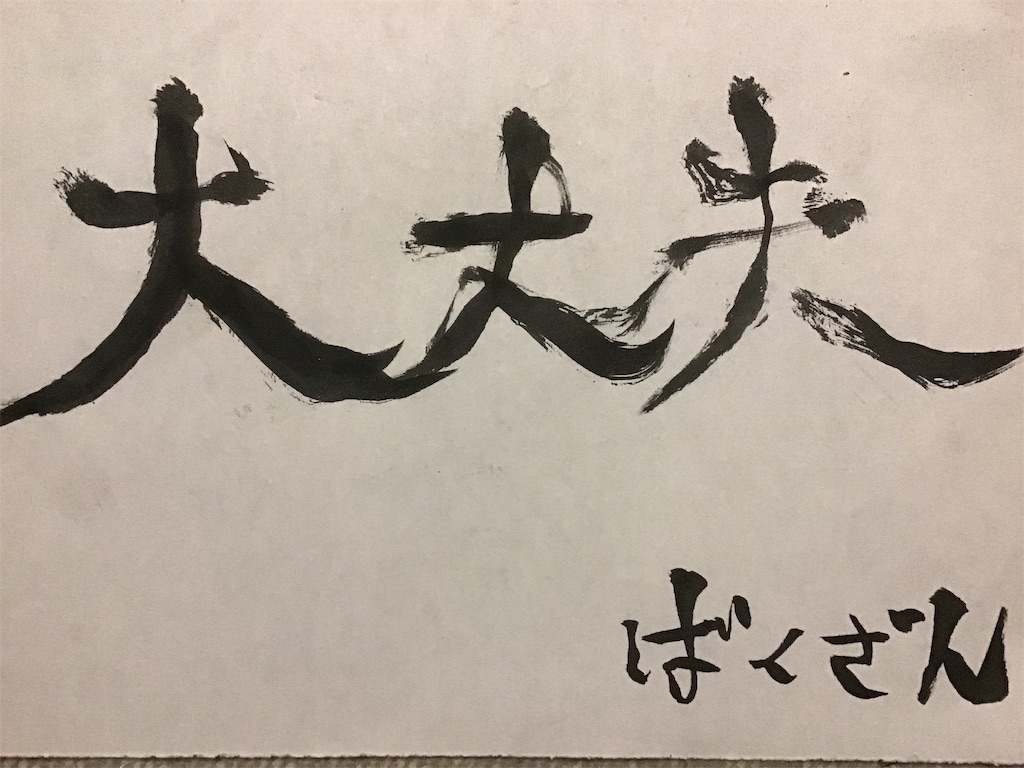 大丈夫
ばくざん